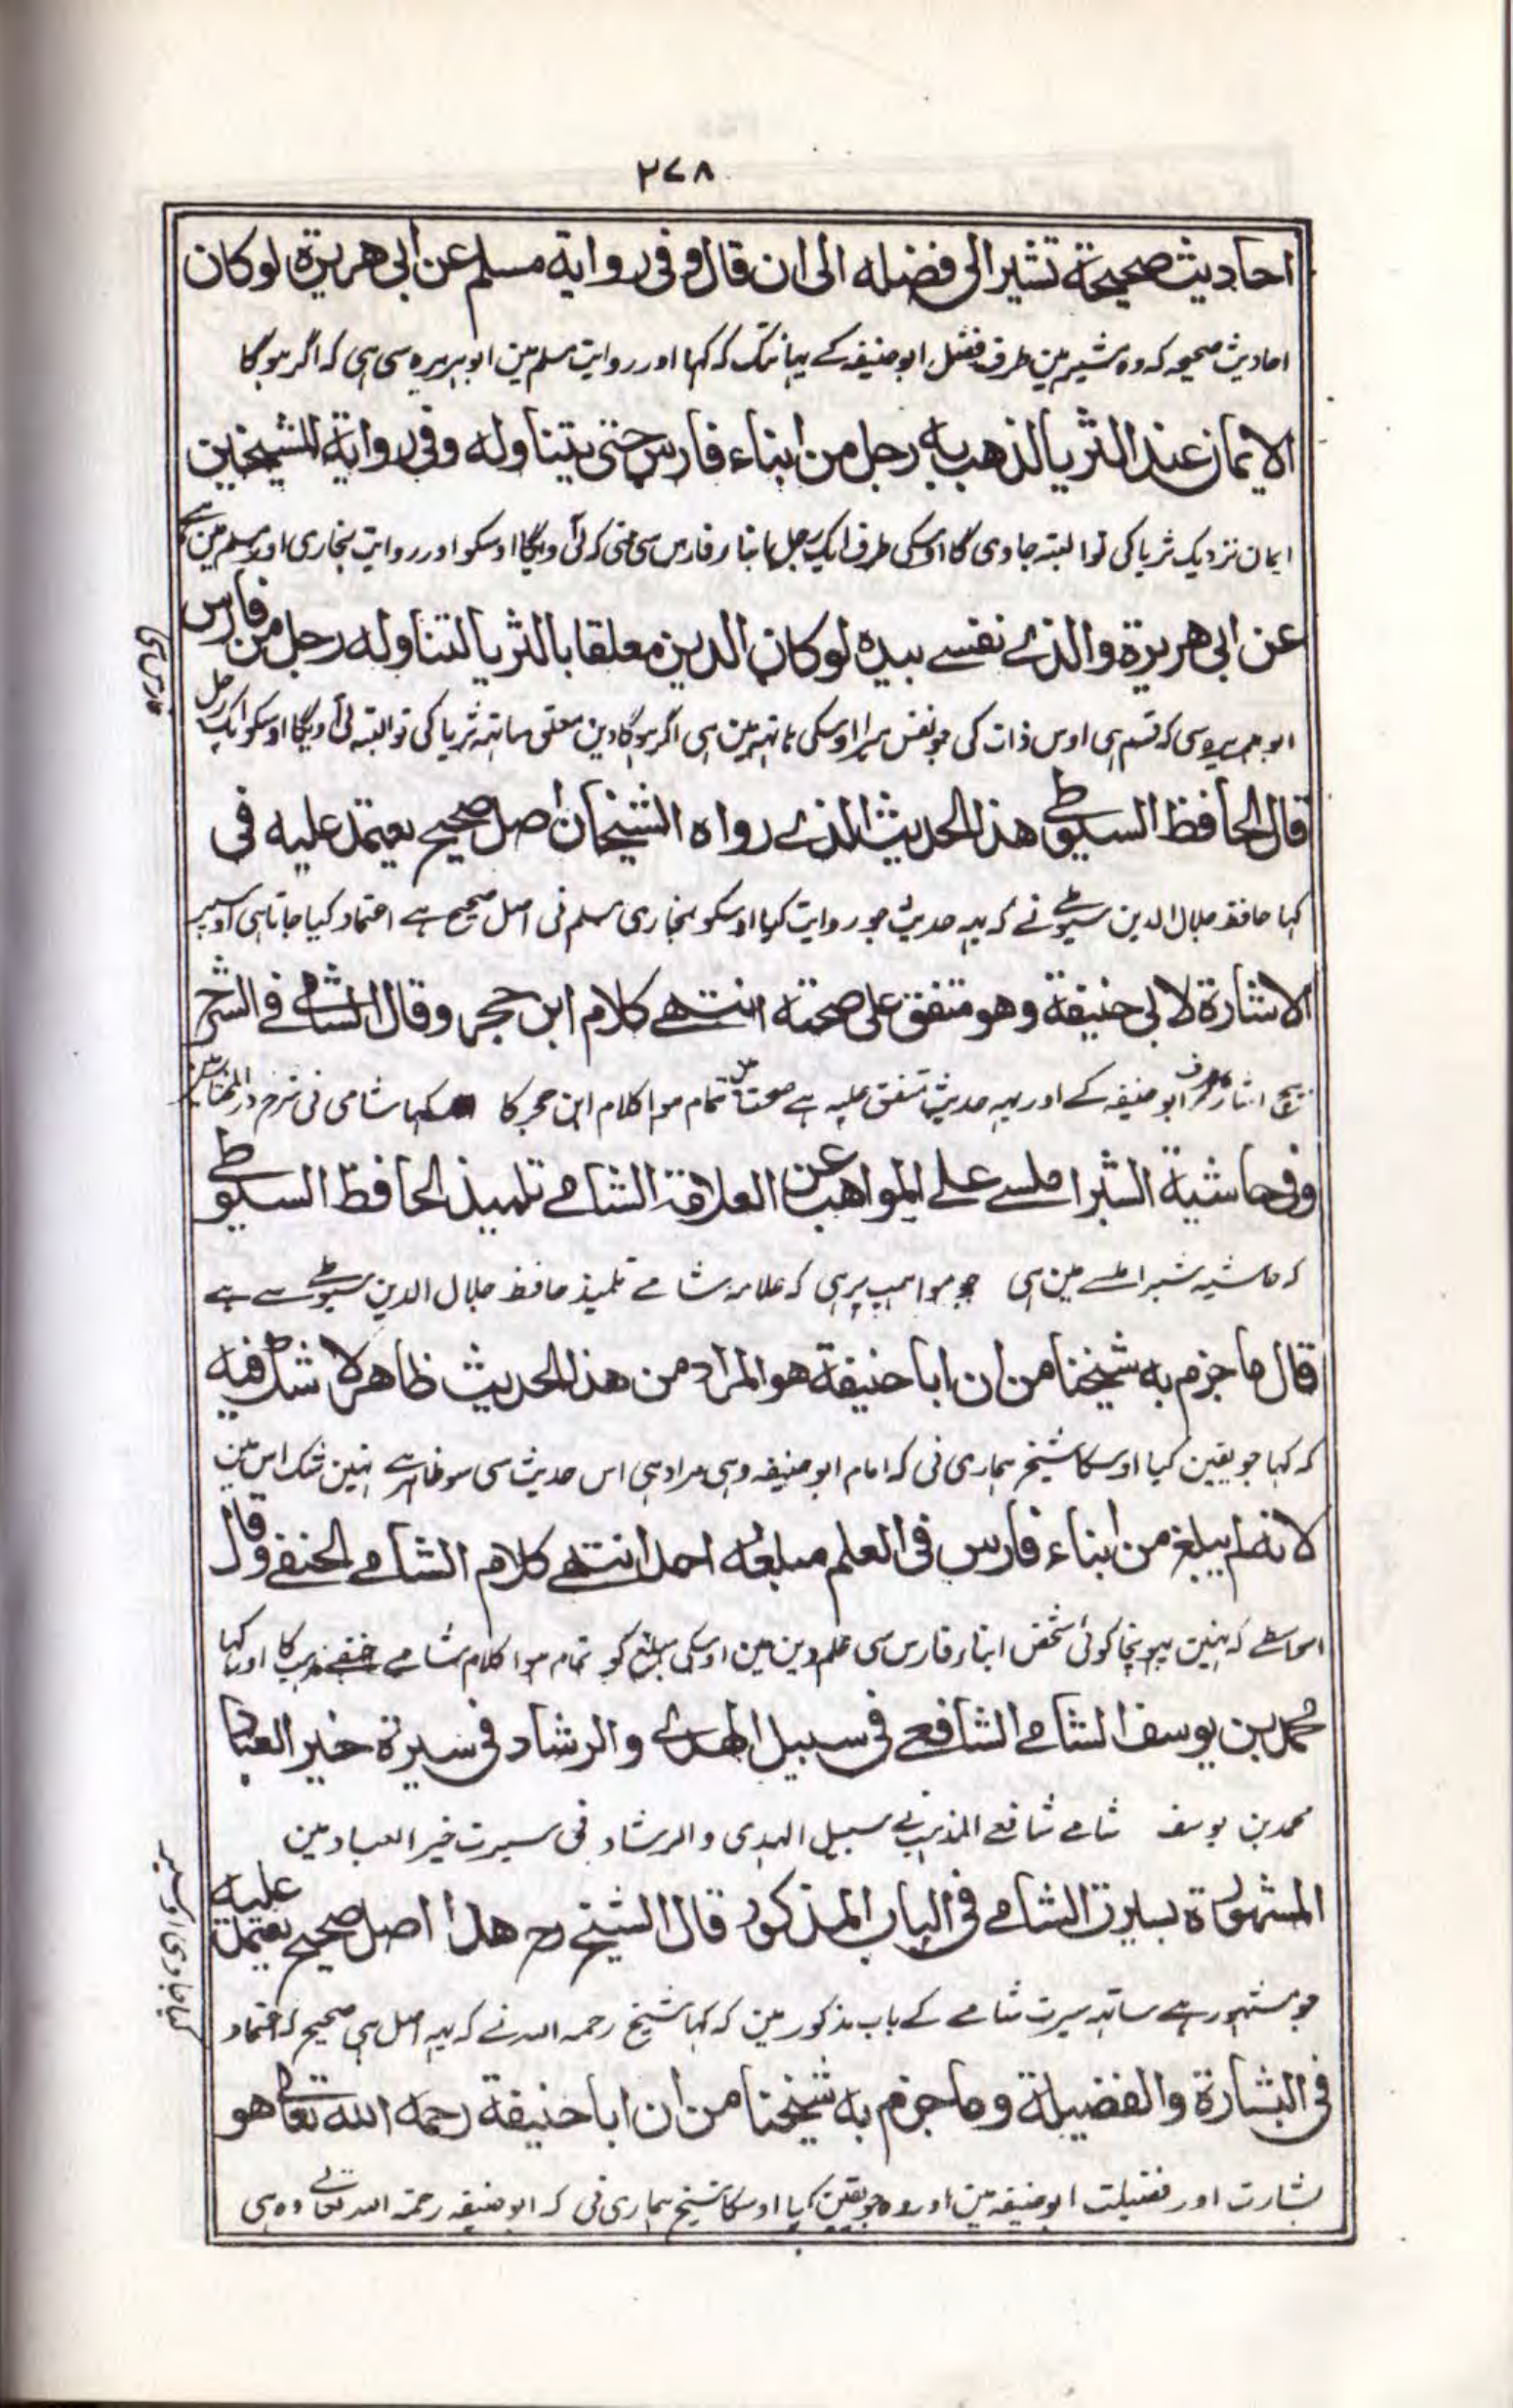 ۲۷۸
احاديث صحيحة تشير الى فضله الى ان قال وفى رواية مسلم عن ابى هريرة لوكان
احادیث صحیحہ کہ وہ مشیر ہین طرف فضل ابو حنیفہ کے یہانتک کہ کہا اور روایت مسلم مین ابو ہریرہ سی ہی کہ اگر ہوگا
الايمان عند الثريا لذهب به رجل من ابناء فارس حتى يتناوله وفى رواية الشيخين
ایمان نزدیک ثریا کی تو البتہ جاوی گا اوسکی طرف ایک رجل ابناء فارس سی حتی کہ لی آویگا اوسکو اور روایت بخاری اور مسلم مین ہے
عن ابى هريرة والذے نفسے بيده لوكان الدين معلقا بالثريا لتناوله رجل من فارس
ابو ہریرہ سی کہ قسم ہی اوس ذات کی جو نفس میرا اوسکی ہاتہہ مین ہی اگر ہوگا دین معلق ساتہہ ثریا کی تو البتہ لی آویگا اوسکو ایک رجل
فارس سی
قال الحافظ السيوطے هذا الحديث الذے رواه الشيخان اصل صحيح يعتمد عليه فى
کہا حافظ جلال الدین سیوطے نے کہ یہہ حدیث جو روایت کیا اوسکو بخاری مسلم نی اصل صحیح ہے اعتماد کیا جاتا ہی اوسپر
الاشارة لابى حنيفة وهو متفق على صحته انتهے كلام ابن حجر وقال الشامے فے الشرح
بیچ اشارہ طرف ابو حنیفہ کے اور یہہ حدیث متفق علیہ ہے صحت مین تمام ہوا کلام ابن حجر کا کہا شامی نی شرح در المختار مین
وفى حاشية الشبراملسے علے المواهب عن العلامة الشامے تلميذ الحافظ السيوطے
کہ حاشیہ شبراملسے مین ہی جو مواہب پر ہی کہ علامہ شامے تلمیذ حافظ جلال الدین سیوطے سے ہے
قال ما جزم به شيخنا من ان ابا حنيفة هو المراد من هذا الحديث ظاهر لا شك فيه
کہ کہا جو یقین کیا اوسکا شیخ ہماری نی کہ امام ابو حنیفہ وہی مراد ہی اس حدیث سی سو ظاہر ہے نہین شک اس مین
لانه لم يبلغ من ابناء فارس فى العلم مبلغه احد انتهے كلام الشامے الحنفے وقال
اسواسطے کہ نہین پہونچا کوئی شخص ابناء فارس سی علم دین مین اوسکی مبلغ کو تمام ہوا کلام شامے حنفے مذہب کا اور کہا
محمد بن يوسف الشامے الشافعے فى سبيل الهدے والرشاد فى سيرة خير العباد
محمد بن یوسف شامے شافعے المذہب نے سبیل الہدی والرشاد فی سیرت خیر العباد مین
المشهورة بسيرة الشامے فى الباب المذكور قال الشيخ رح هذا اصل صحيح يعتمد عليه
جو مشہور ہے ساتہہ سیرت شامے کے باب مذکور مین کہ کہا شیخ رحمہ اللہ نے کہ یہہ اصل ہی صحیح کہ اعتماد
کیا جاوی اوسپر
فى البشارة والفضيلة وما جزم به شيخنا من ان ابا حنيفة رحمه الله تعالے هو
بشارت اور فضیلت ابو حنیفہ مین اور وہ جو یقین کیا اوسکا شیخ ہماری نی کہ ابو حنیفہ رحمۃ اللہ تعالے وہ ہی